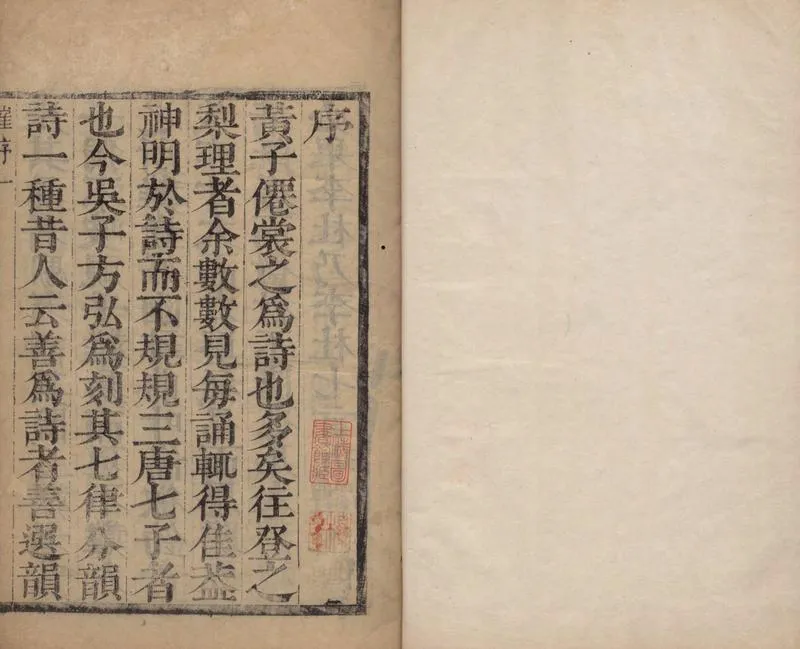 序
黃子僊裳之爲詩也多矣往登之
梨理者余數數見每誦輒得佳葢
神明於詩而不規規三唐七子者
也今吳子方弘爲刻其七律分韻
詩一種昔人云善爲詩者善選韻
序一